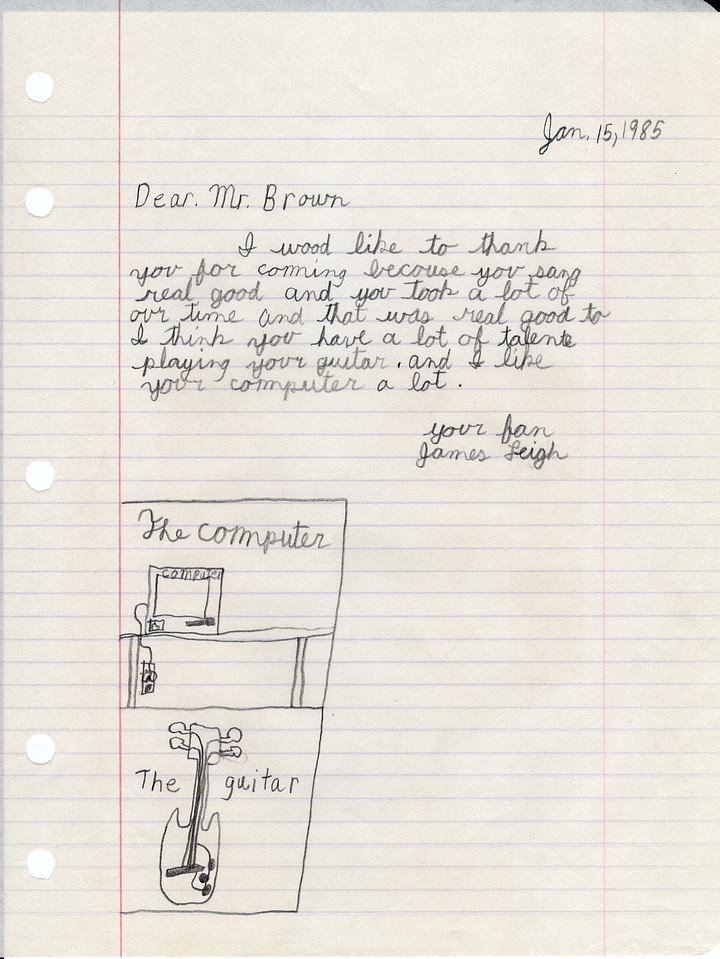 Jan. 15, 1985
Dear. Mr. Brown
I wood like to thank
you for coming becouse you sang
real good and you took a lot of
our time and that was real good to
I think you have a lot of talente
playing your guitar. and I like
your computer a lot.
your fan
James Leigh
The computer
computer
The guitar